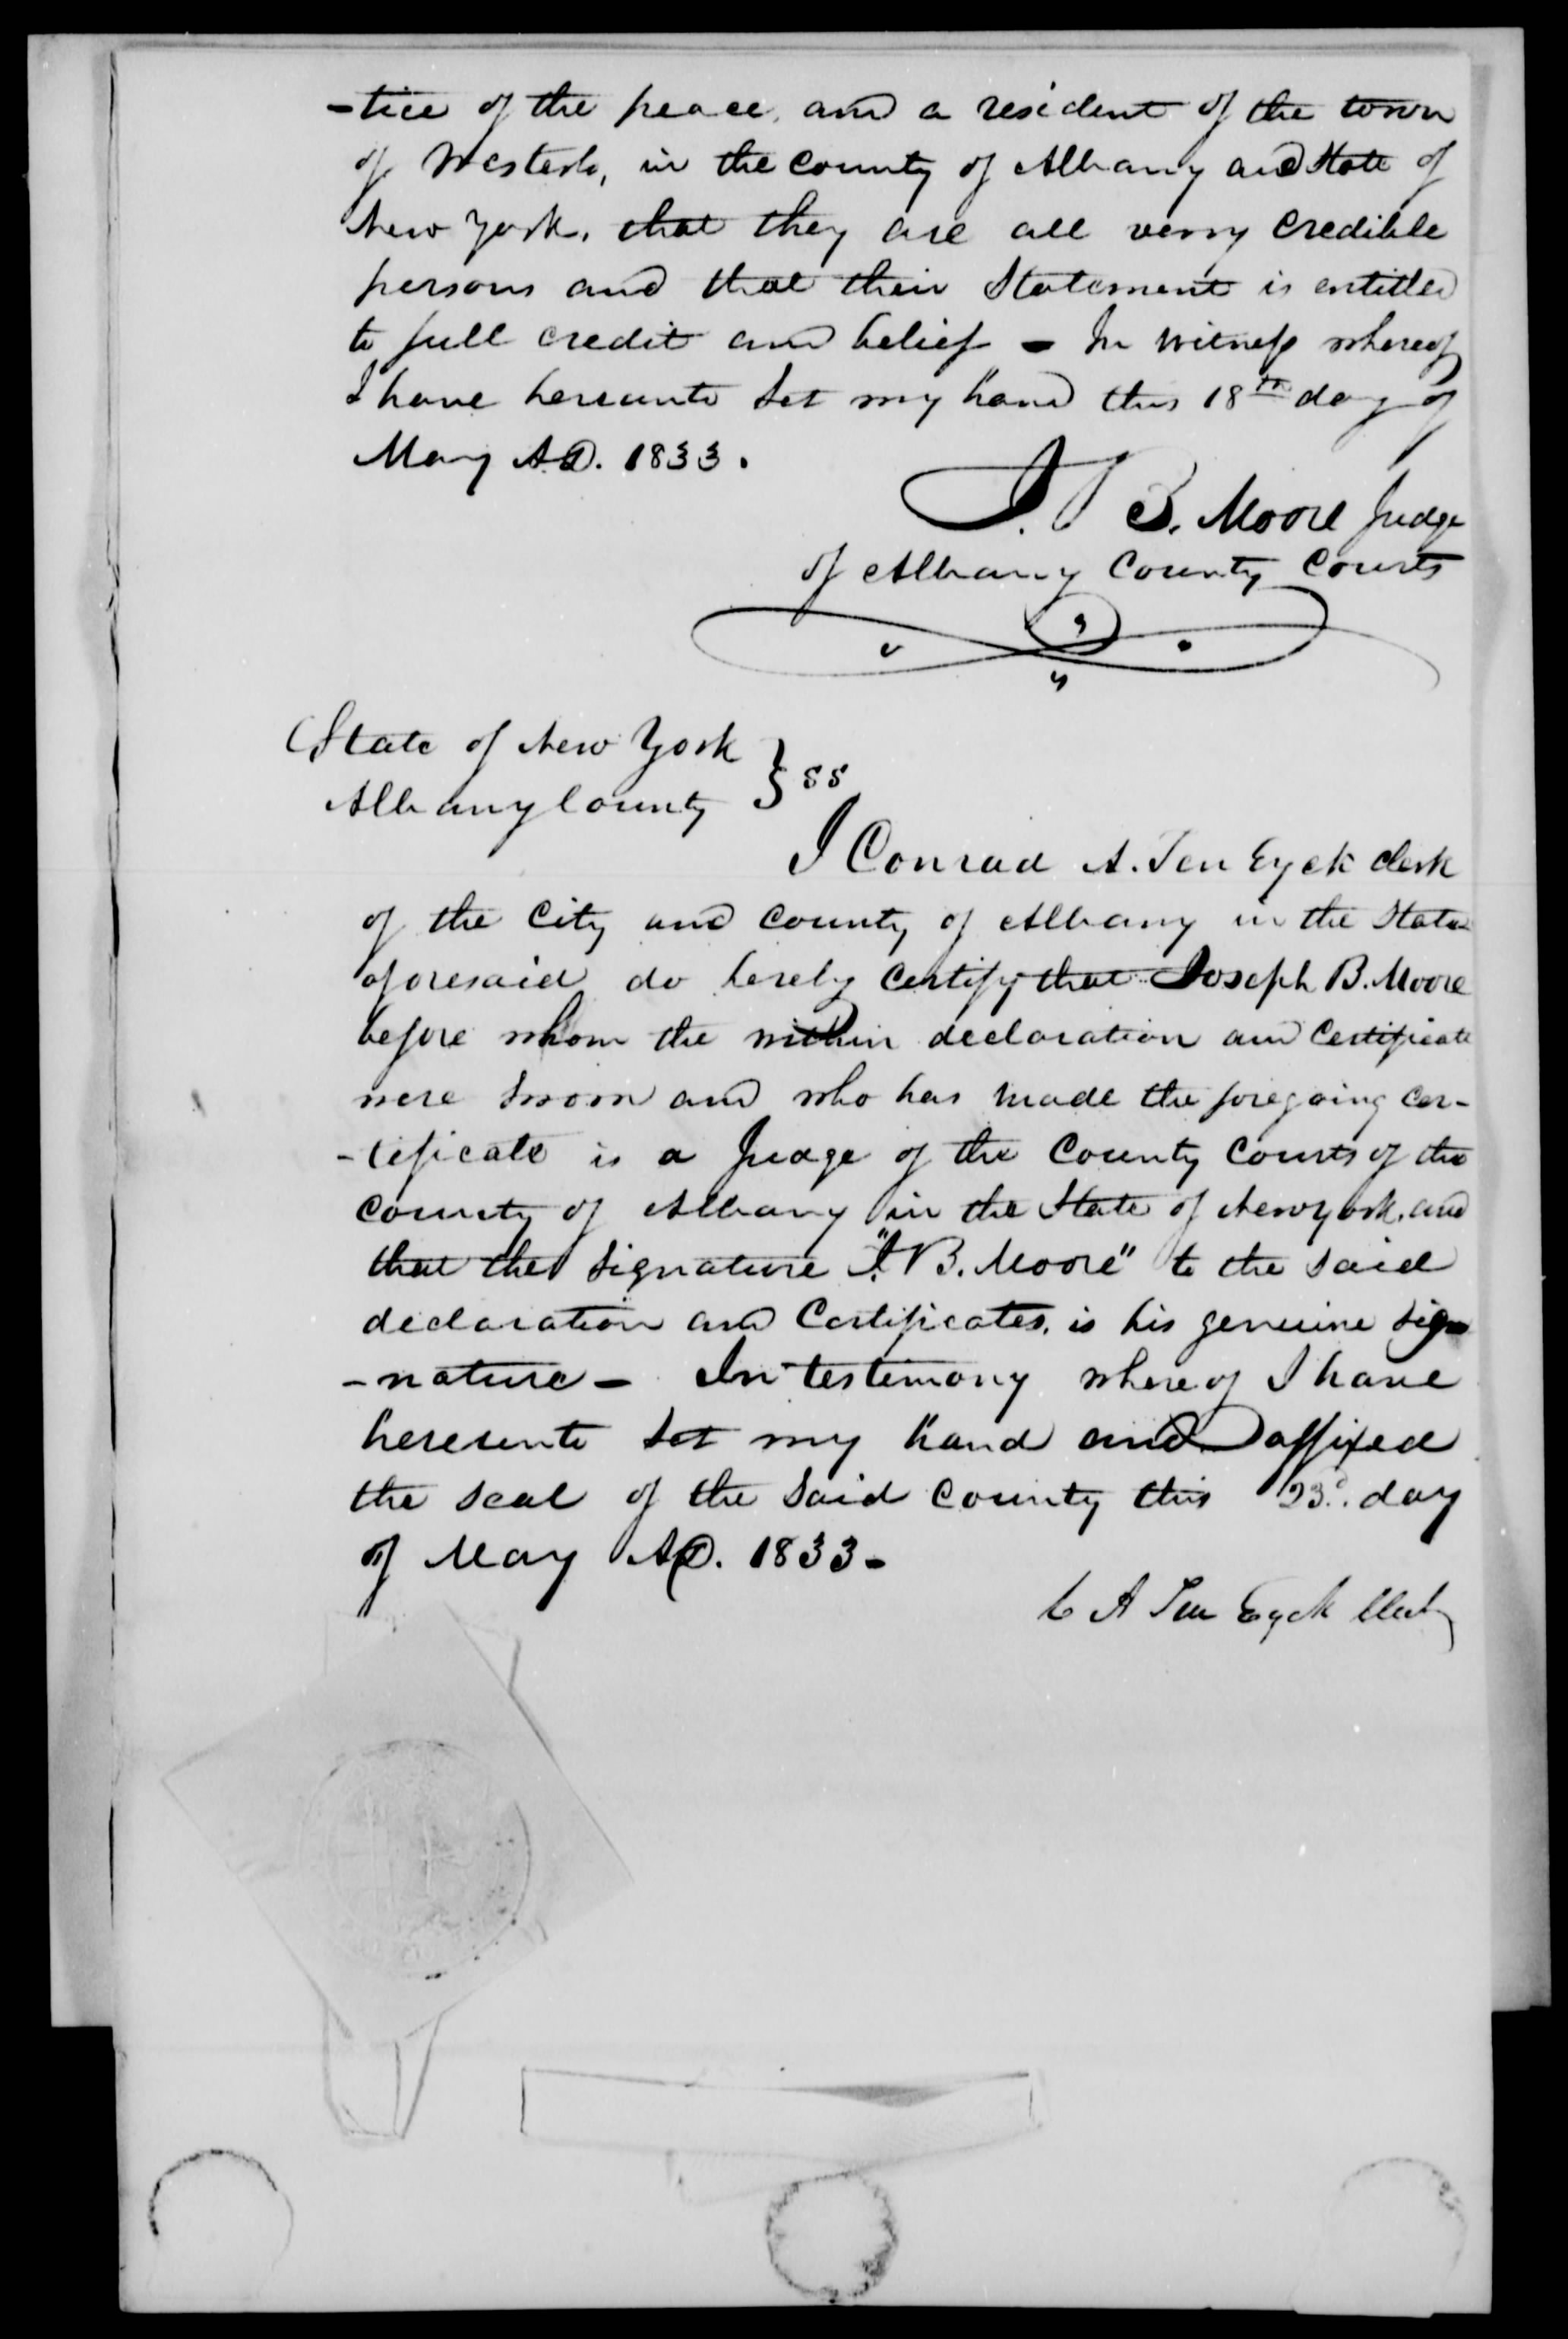 -tice of the peace, and a resident of the town
of Westerlo, in the County of Albany and State of
New York, that they are all verry Credible
persons and that their Statement is entitled
to full credit and belief - In Witness whereof
I have hereunto Set my hand this 18th day of
May A.D. 1833.
J. B. Moore Judge
of Albany County Courts
State of New York
Albany County } SS
I Conrad A. Ten Eyck Clerk
of the City and County of Albany in the State
aforesaid do hereby Certify that Joseph B. Moore
before whom the within declaration and Certificate
were Sworn and who has made the foregoing cer-
-tificate is a Judge of the County Courts of the
County of Albany in the State of New York, and
that the Signature "J. B. Moore" to the Said
declaration and Certificates, is his genuine Sig-
-nature - In testimony whereof I have
hereunto Set my hand and affixed
the Seal of the Said County this 23d. day
of May A.D. 1833-
C A Ten Eyck Clerk